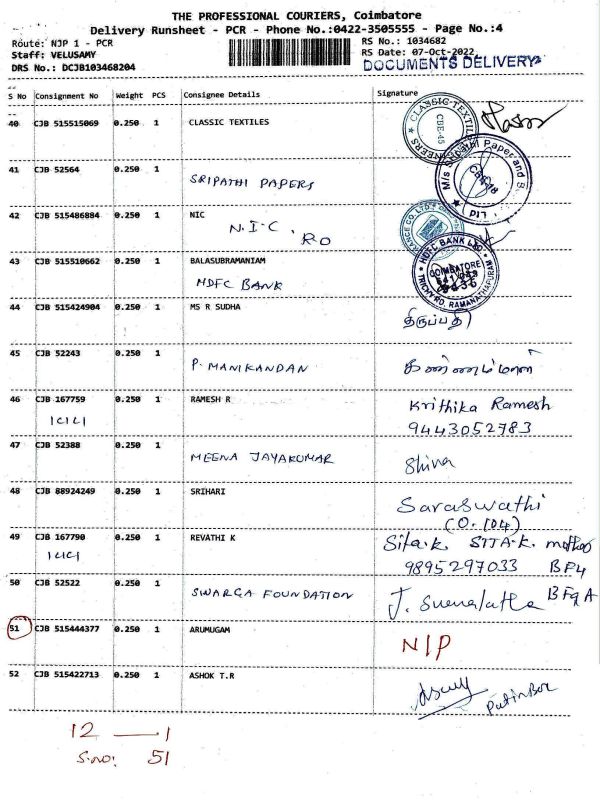 THE PROFESSIONAL COURIERS, Coimbatore
Delivery Runsheet - PCR - Phone No.:0422-3505555 - Page No.:4
Route: NJP 1 - PCR
RS No.: 1034682
Staff: VELUSAMY
RS Date: 07-Oct-2022
DRS No.: DCJB103468204
DOCUMENTS DELIVERY
S No Consignment No Weight PCS Consignee Details Signature
40 CJB 515515069 0.250 1 CLASSIC TEXTILES
CLASSIC TEXTIL
CBE-45
41 CJB 52564 0.250 1 SRIPATHI PAPERS
M/s Sripathi Paper and B
42 CJB 515486884 0.250 1 NIC
N.I.C. RO
43 CJB 515510662 0.250 1 BALASUBRAMANIAM
HDFC BANK
HDFC BANK LTD
COIMBATORE
TRICHY RD. RAMANATHAPURAM
44 CJB 515424904 0.250 1 MS R SUDHA
திருப்பதி
45 CJB 52243 0.250 1 P. MANIKANDAN
46 CJB 167759 0.250 1 RAMESH R Krithika Ramesh
9443052783
47 CJB 52388 0.250 1 MEENA JAYAKUMAR Shiva
48 CJB 88924249 0.250 1 SRIHARI
Saraswathi
(O.104)
49 CJB 167790 0.250 1 REVATHI K Sita.k SITA.K. mother
9895297033 BF4
50 CJB 52522 0.250 1 SWARGA FOUNDATION
51 CJB 515444377 0.250 1 ARUMUGAM
N/P
52 CJB 515422713 0.250 1 ASHOK T.R
12 — 1
S.no: 51